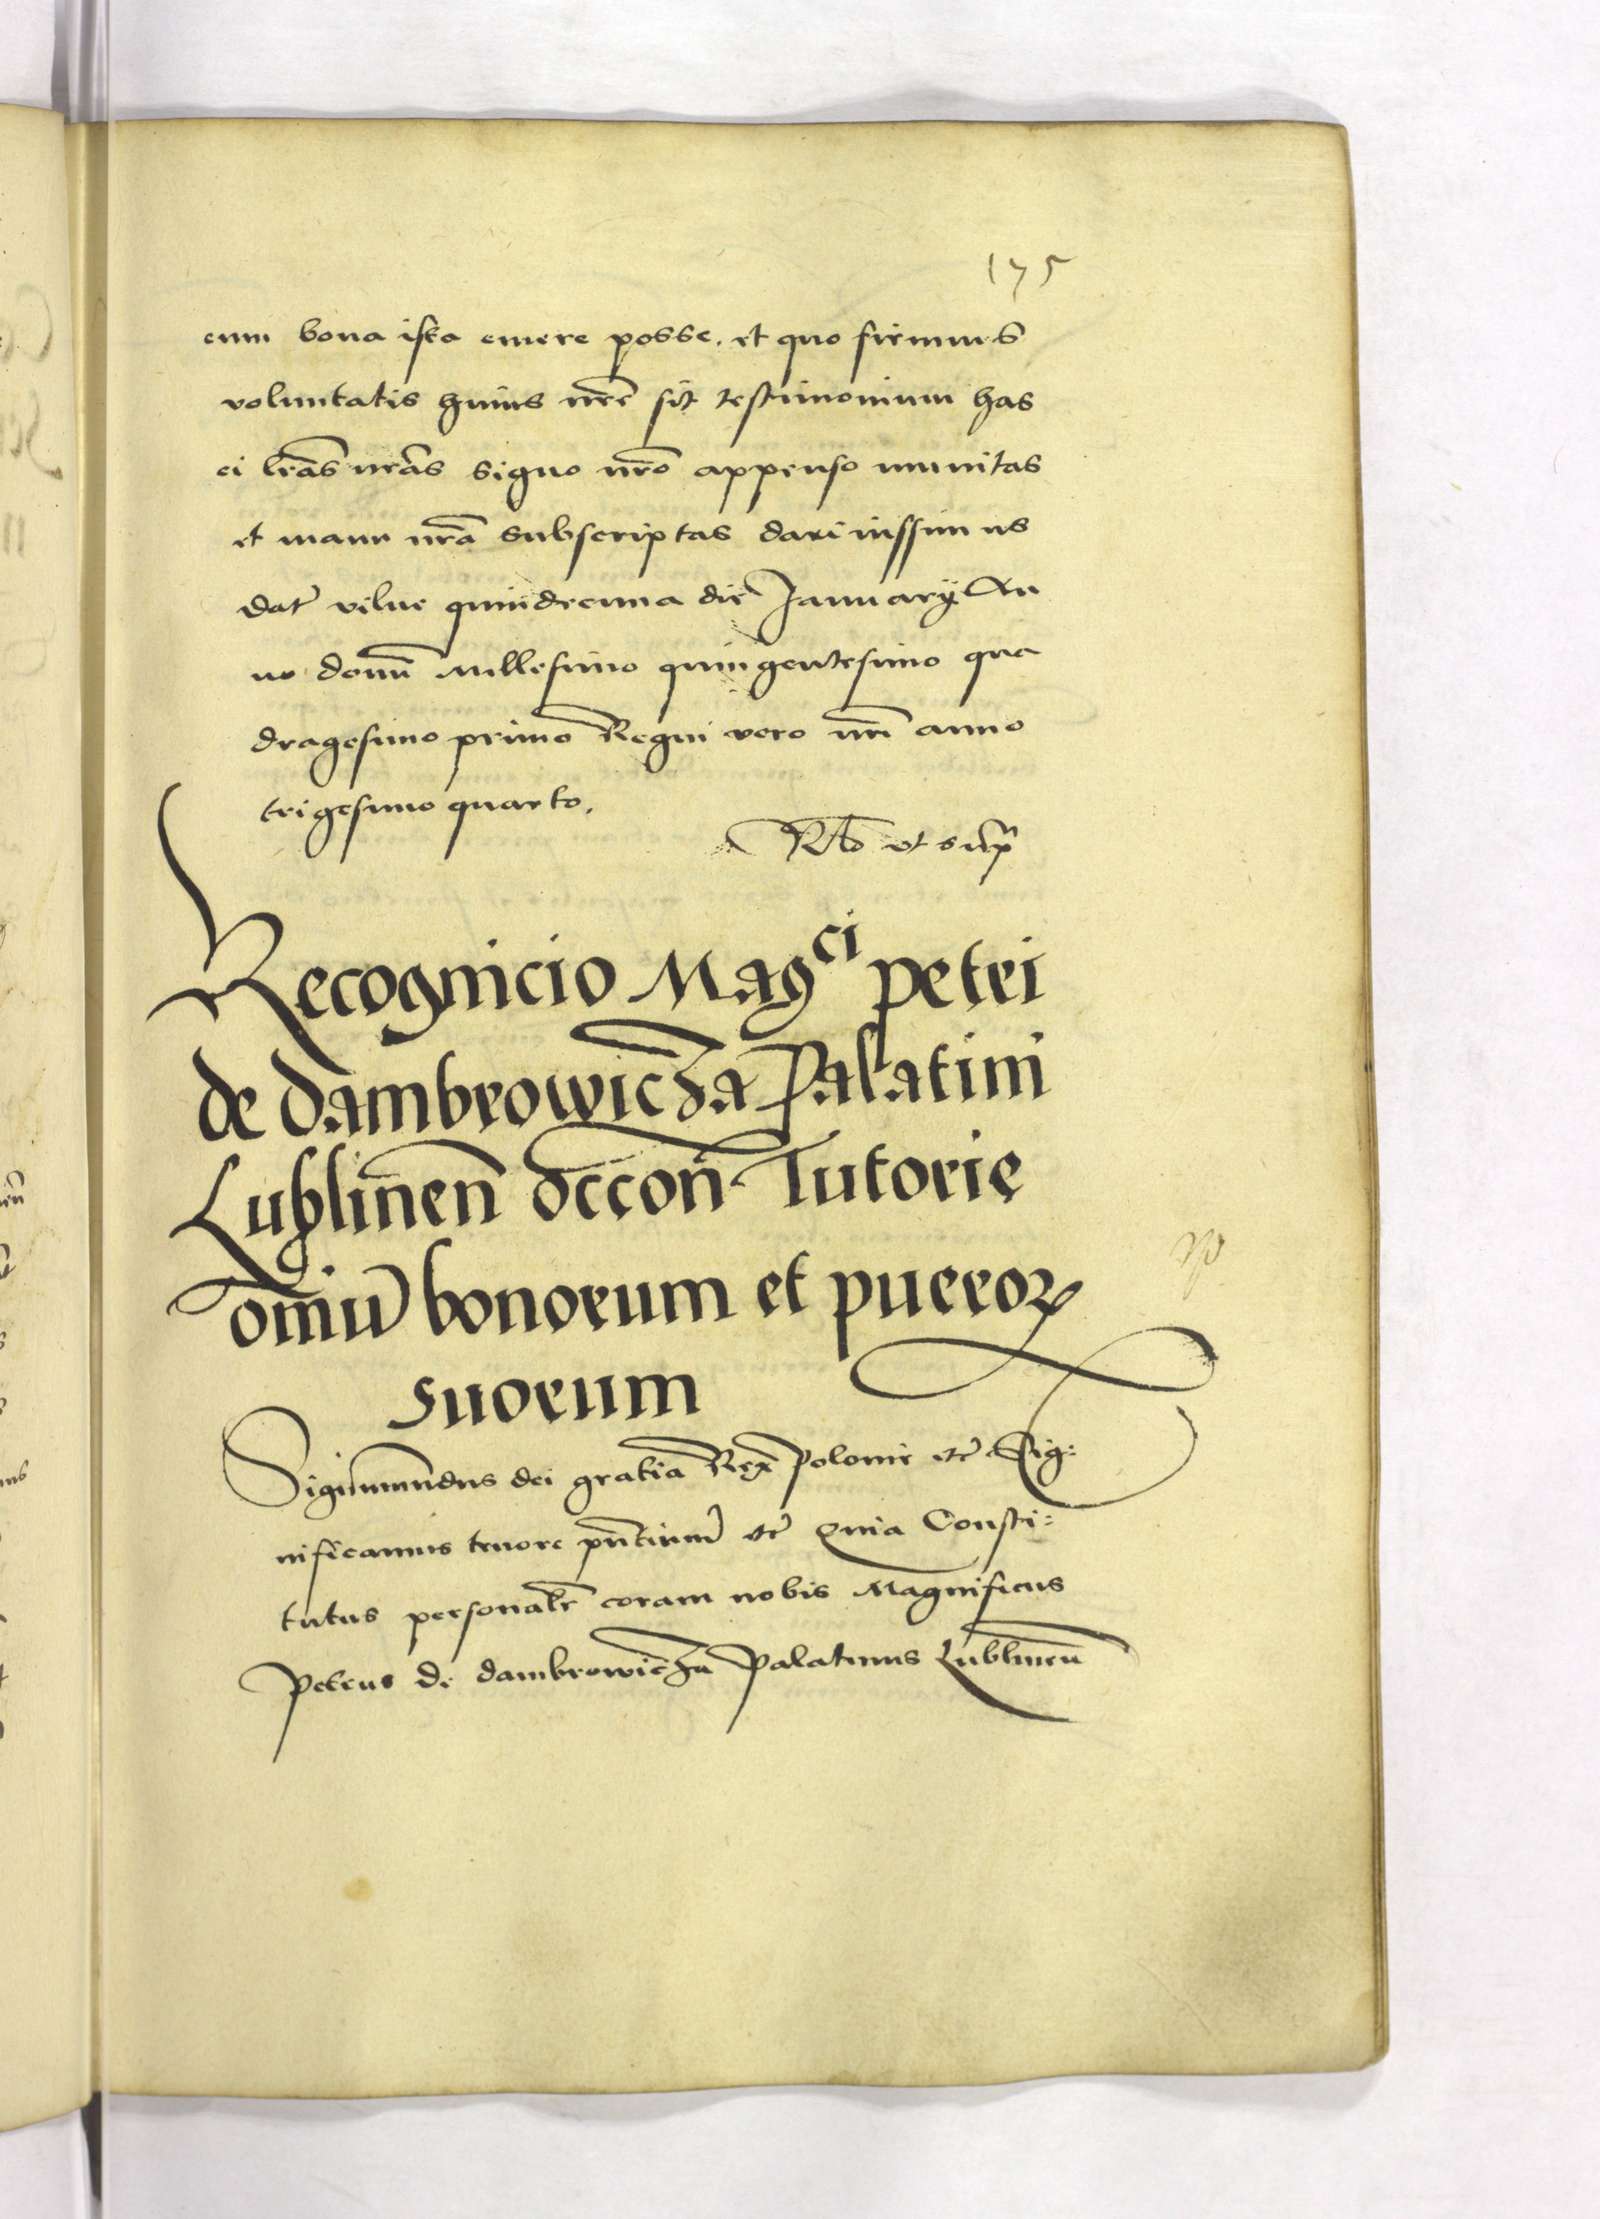 175
eum bona ista emere posse. et quo firmius
voluntatis huius nr̃e sit testimonium has
ei lr̃as nr̃as signo nr̃o appenso munitas
et manu nr̃a subscriptas dari iussimus
Dat̃ vilne quindecima die January An
no domñ Millesimo quingentesimo qua
dragesimo primo Regni vero nr̃i anno
trigesimo quarto.
ut sup̃
Recognicio Mag^ci petri
de dambrowicza Palatini
Lublineñ Tutorie
om̃iũ bonorum et pueroꝝ
suorum
Sigismundus dei gratia Rex Polonie etc̃ Sig:
nificamus tenore pñtium etc̃ Quia Consti:
tutus personalr̃ coram nobis Magnificus
Petrus de dambrowicza Palatinus Lublineñ